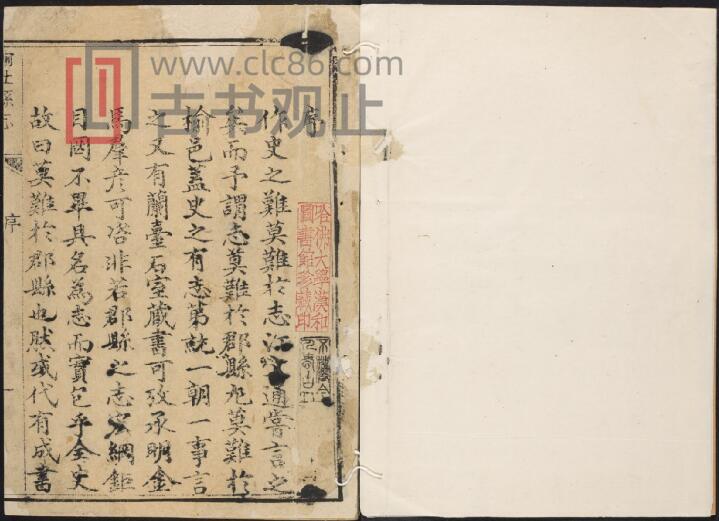 序
作史之難莫難於志江文通嘗言之
矣而予謂志莫難於郡縣尤莫難於
榆邑蓋史之有志第統一朝一事言
之又有蘭臺石室蔵書可攷承明金
馬羣彦可咨非若郡縣之志宏綱鉅
目罔不畢具名為志而實包乎全史
故曰莫難於郡縣也然或代有成書
榆社縣志
序
一
哈佛大學漢和
圖書館珍藏印
www.clc86.com
古书观止